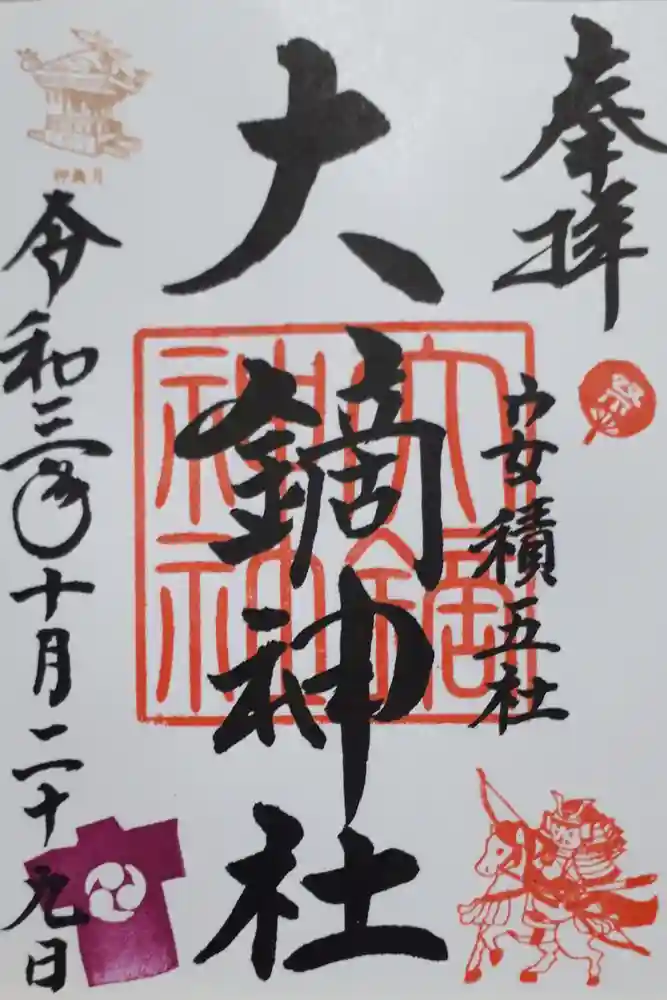 奉拝
祭
安積五社
大鏑神社
大鏑
神社
神無月
令和三年十月二十九日